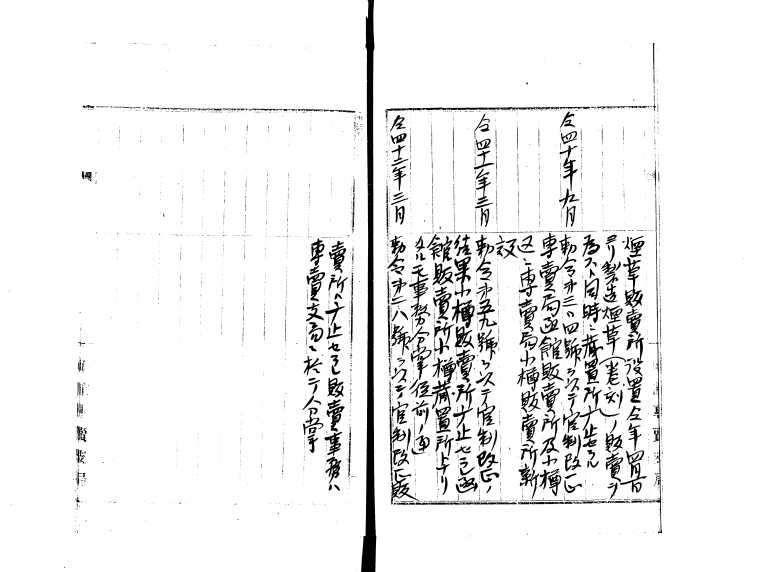 煙草販賣所設置仝年四月一日
ヨリ製造煙草(卷刻)ノ販賣ヲ
爲ス同時ニ藏置所ヲ廢止セラル
仝四十年九月
勅令第三〇四號ニ以テ官制改正
專賣局函館販賣所及小樽
ニ專賣局小樽販賣所新
設
仝四十一年三月
勅令第五九號ニ以テ官制改正ノ
結果小樽販賣所廢止セラレ函
館販賣所小樽藏置所トナリ
タルモ事務分掌從前ノ通
仝四十二年三月
勅令第二八號ニ以テ官制改正販
賣所ハ廢止セラレ販賣事務ハ
專賣支局ニ於テ分掌